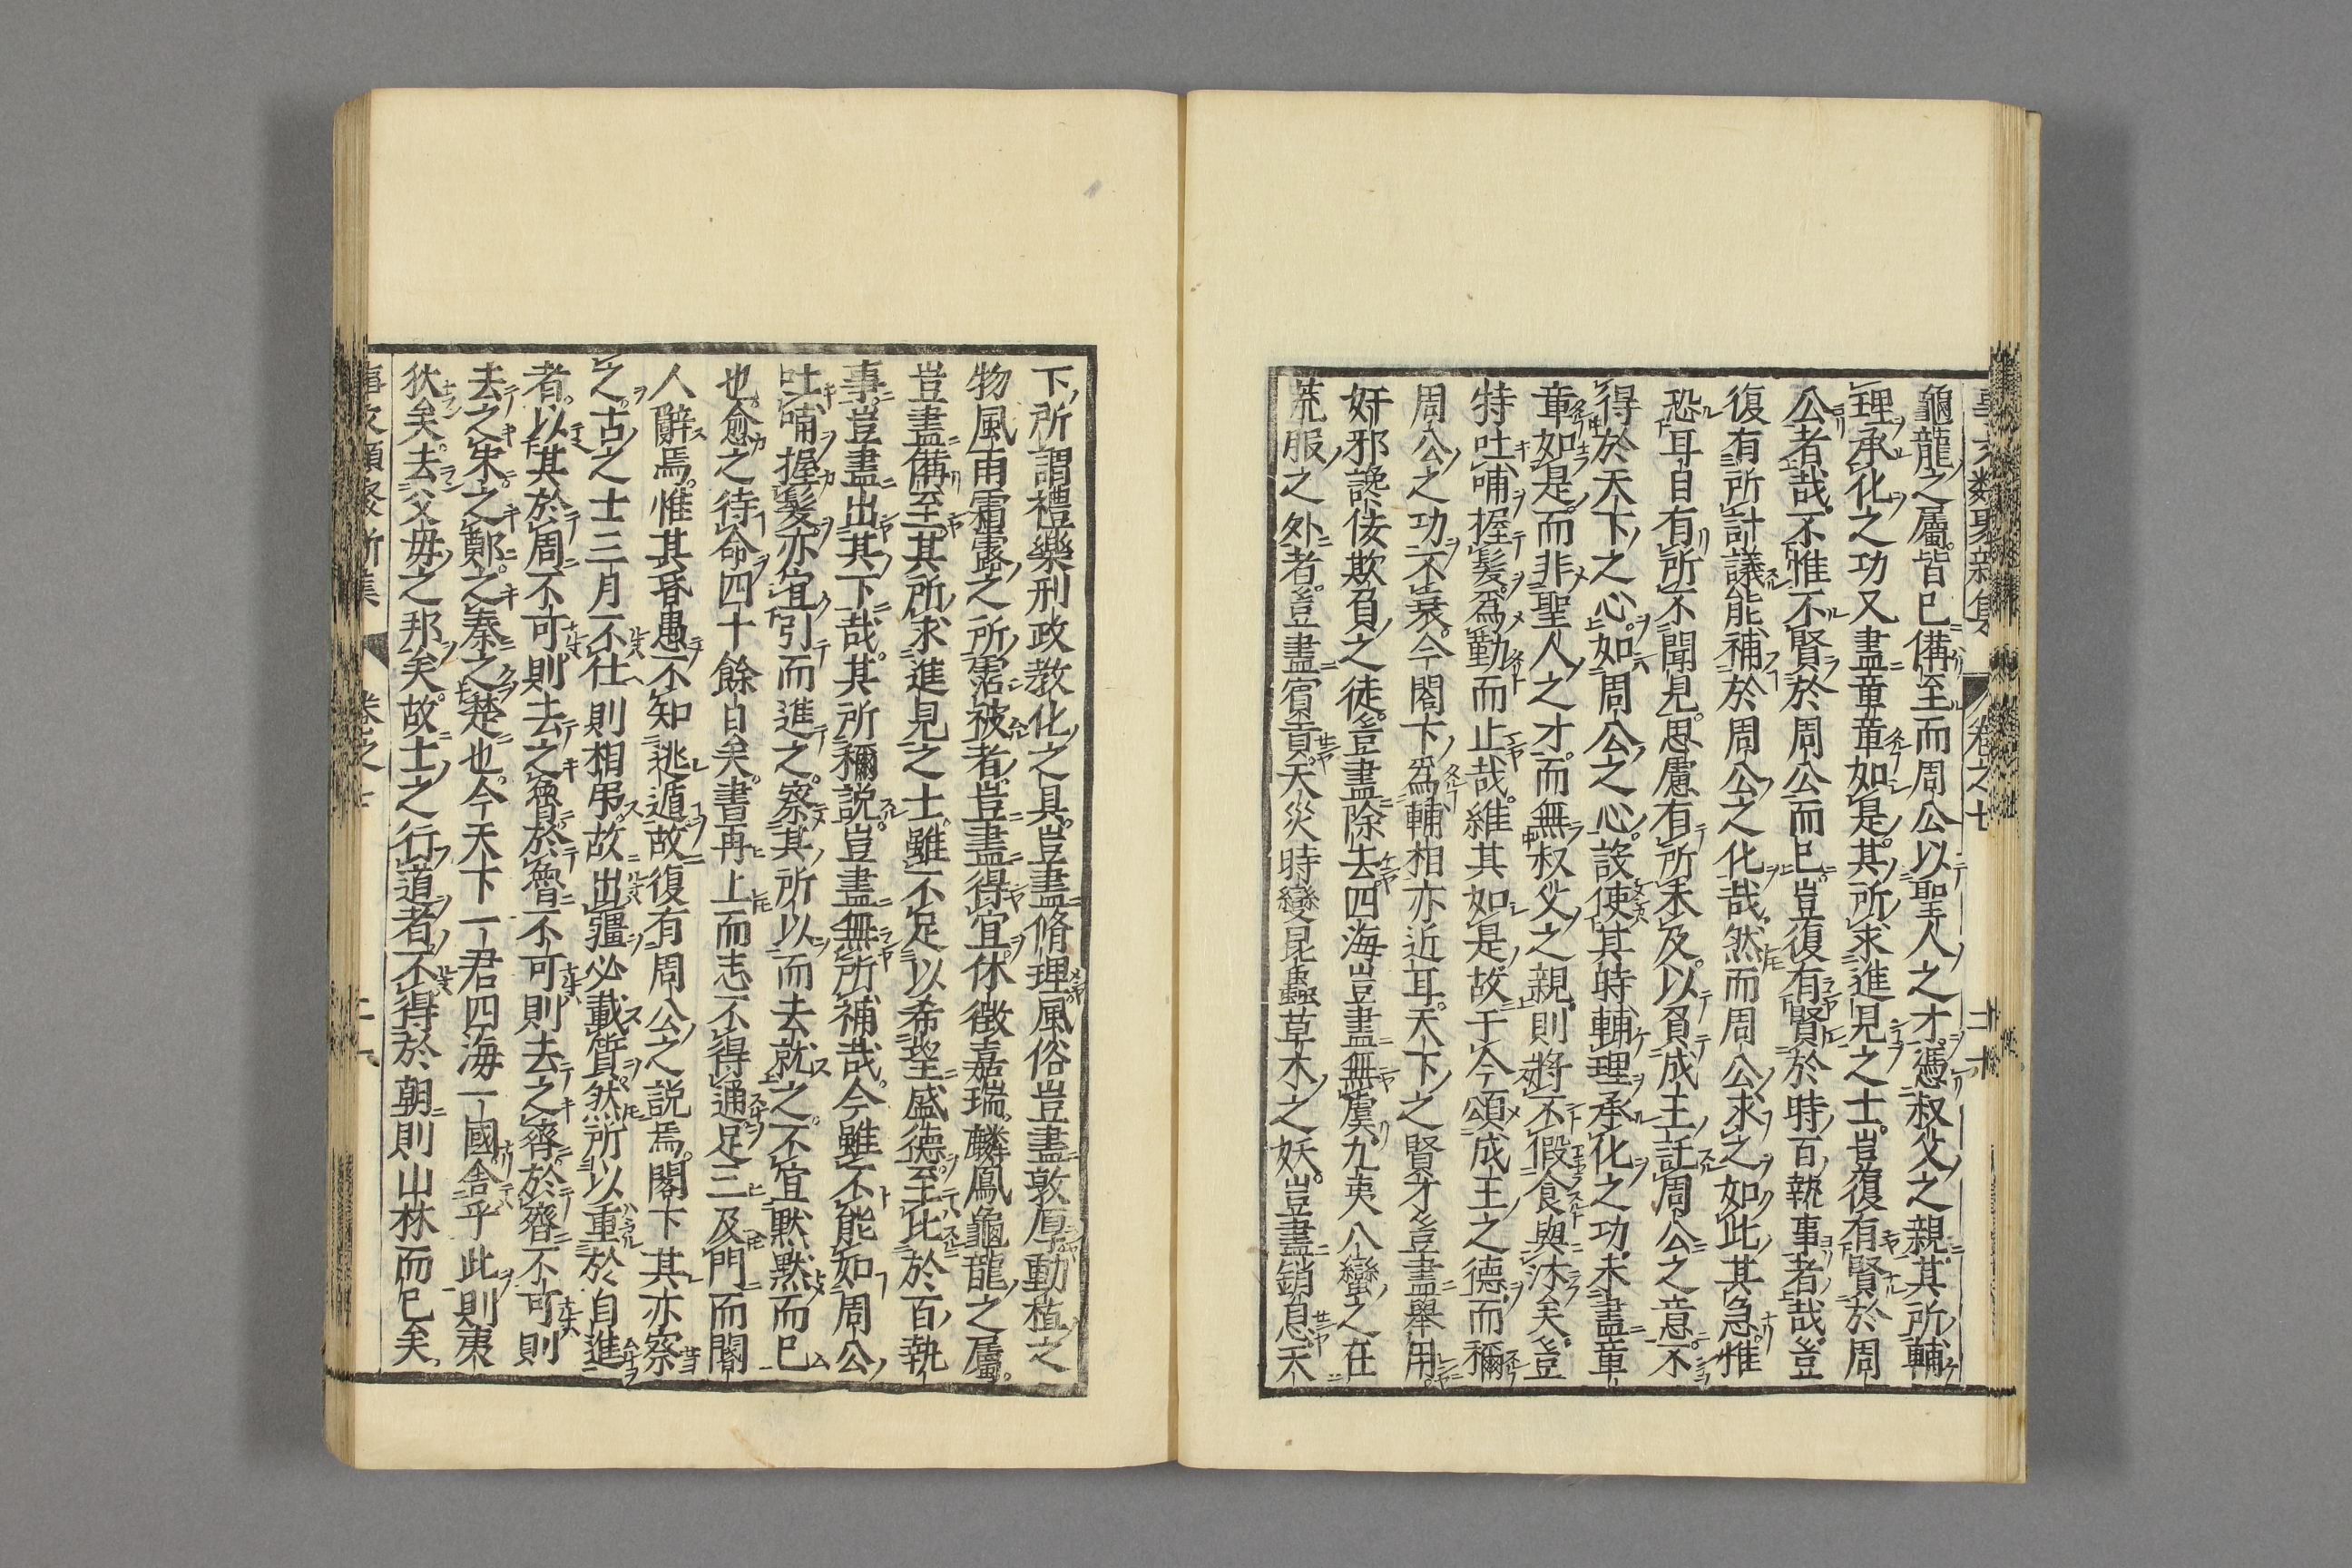 龜龍之屬皆已備至而周公以聖人之才憑叔父之親其所輔
理承化之功又盡章章如是其所求進見之士豈復有賢於周
公者哉不惟不賢於周公而已豈復有賢於時百執事者哉豈
復有所計議能補於周公之化哉然而周公求之如此其急惟
恐耳目有所不聞見思慮有所未及以負成王託周公之意不
得於天下之心如周公之心設使其時輔理承化之功未盡章
章如是而非聖人之才而無叔父之親則將不假食與沐矣豈
特吐哺握髮爲勤而止哉維其如是故于今頌成王之德而稱
周公之功不衰今閣下爲輔相亦近耳天下之賢才豈盡舉用
奸邪讒佞欺負之徒豈盡除去四海豈盡無虞九夷八蠻之在
荒服之外者豈盡賓貢天災時變昆蟲草木之妖豈盡銷息天
下所謂禮樂刑政教化之具豈盡脩理風俗豈盡敦厚動植之
物風雨霜露之所霑被者豈盡得宜休徵嘉瑞麟鳳龜龍之屬
豈盡備至其所求進見之士雖不足以希望盛德至比於百執
事豈盡出其下哉其所稱説豈盡無所補哉今雖不能如周公
吐哺握髮亦宜引而進之察其所以而去就之不宜默默而已
也愈之待命四十餘日矣書再上而志不得通足三及門而閽
人辭焉惟其昏愚不知逃遁故復有周公之説焉閣下其亦察
之古之士三月不仕則相弔故出疆必載質然所以重於自進
者以其於周不可則去之魯於魯不可則去之齊於齊不可則
去之宋之鄭之秦之楚也今天下一君四海一國舍乎此則夷
狄矣去父母之邦矣故士之行道者不得於朝則山林而已矣